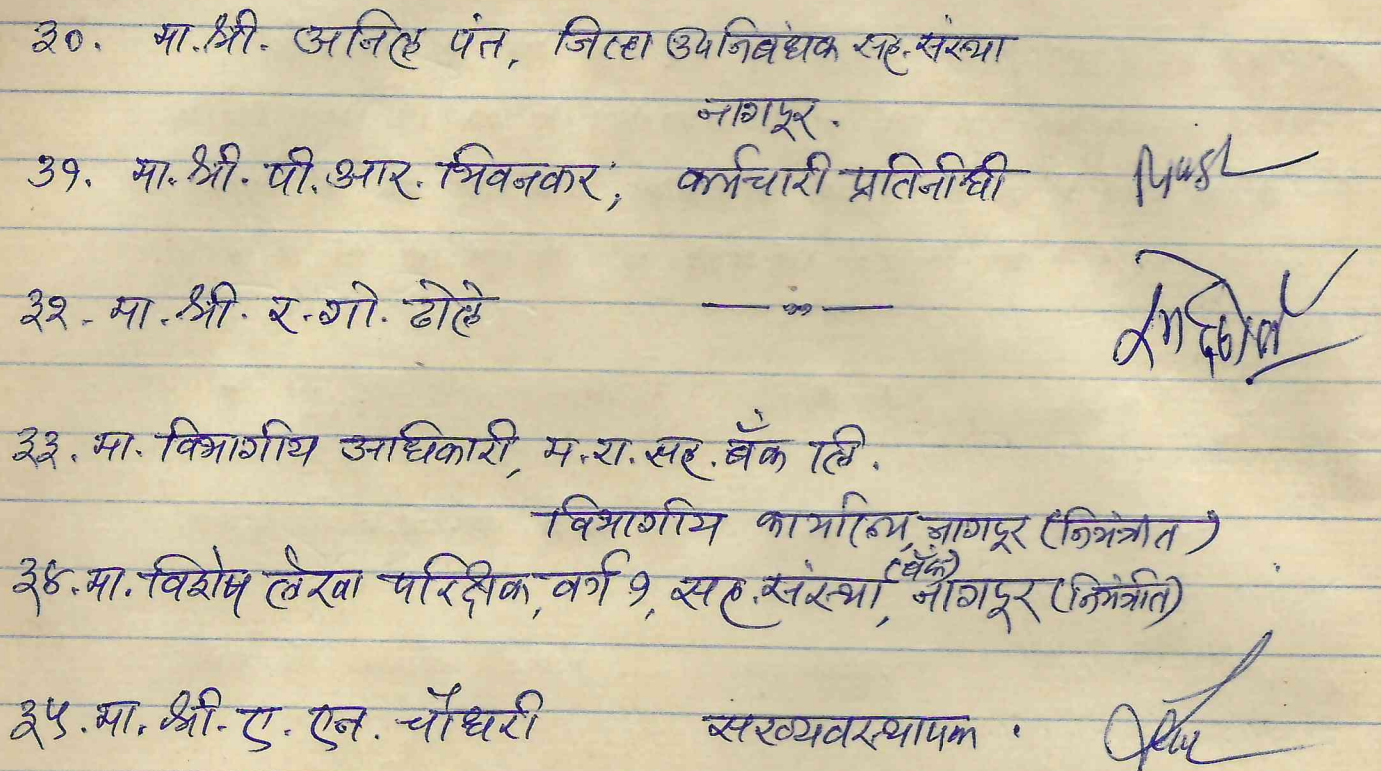 ३०. मा.श्री. अनिल पंत, जिल्हा उपनिबंधक सह. संस्था
नागपूर.
३१. मा.श्री. पी.आर. भिवनकर, कर्मचारी प्रतिनीधी
३२. मा.श्री. र.गो. ढोले —〃—
३३. मा. विभागीय अधिकारी, म.रा. सह. बँक लि.
विभागीय कार्यालय, नागपूर (निमंत्रीत)
३४. मा. विशेष लेखा परिक्षक, वर्ग १, सह. संस्था, (बँक) नागपूर (निमंत्रीत)
३५. मा. श्री. ए. एन. चौधरी सरव्यवस्थापक.